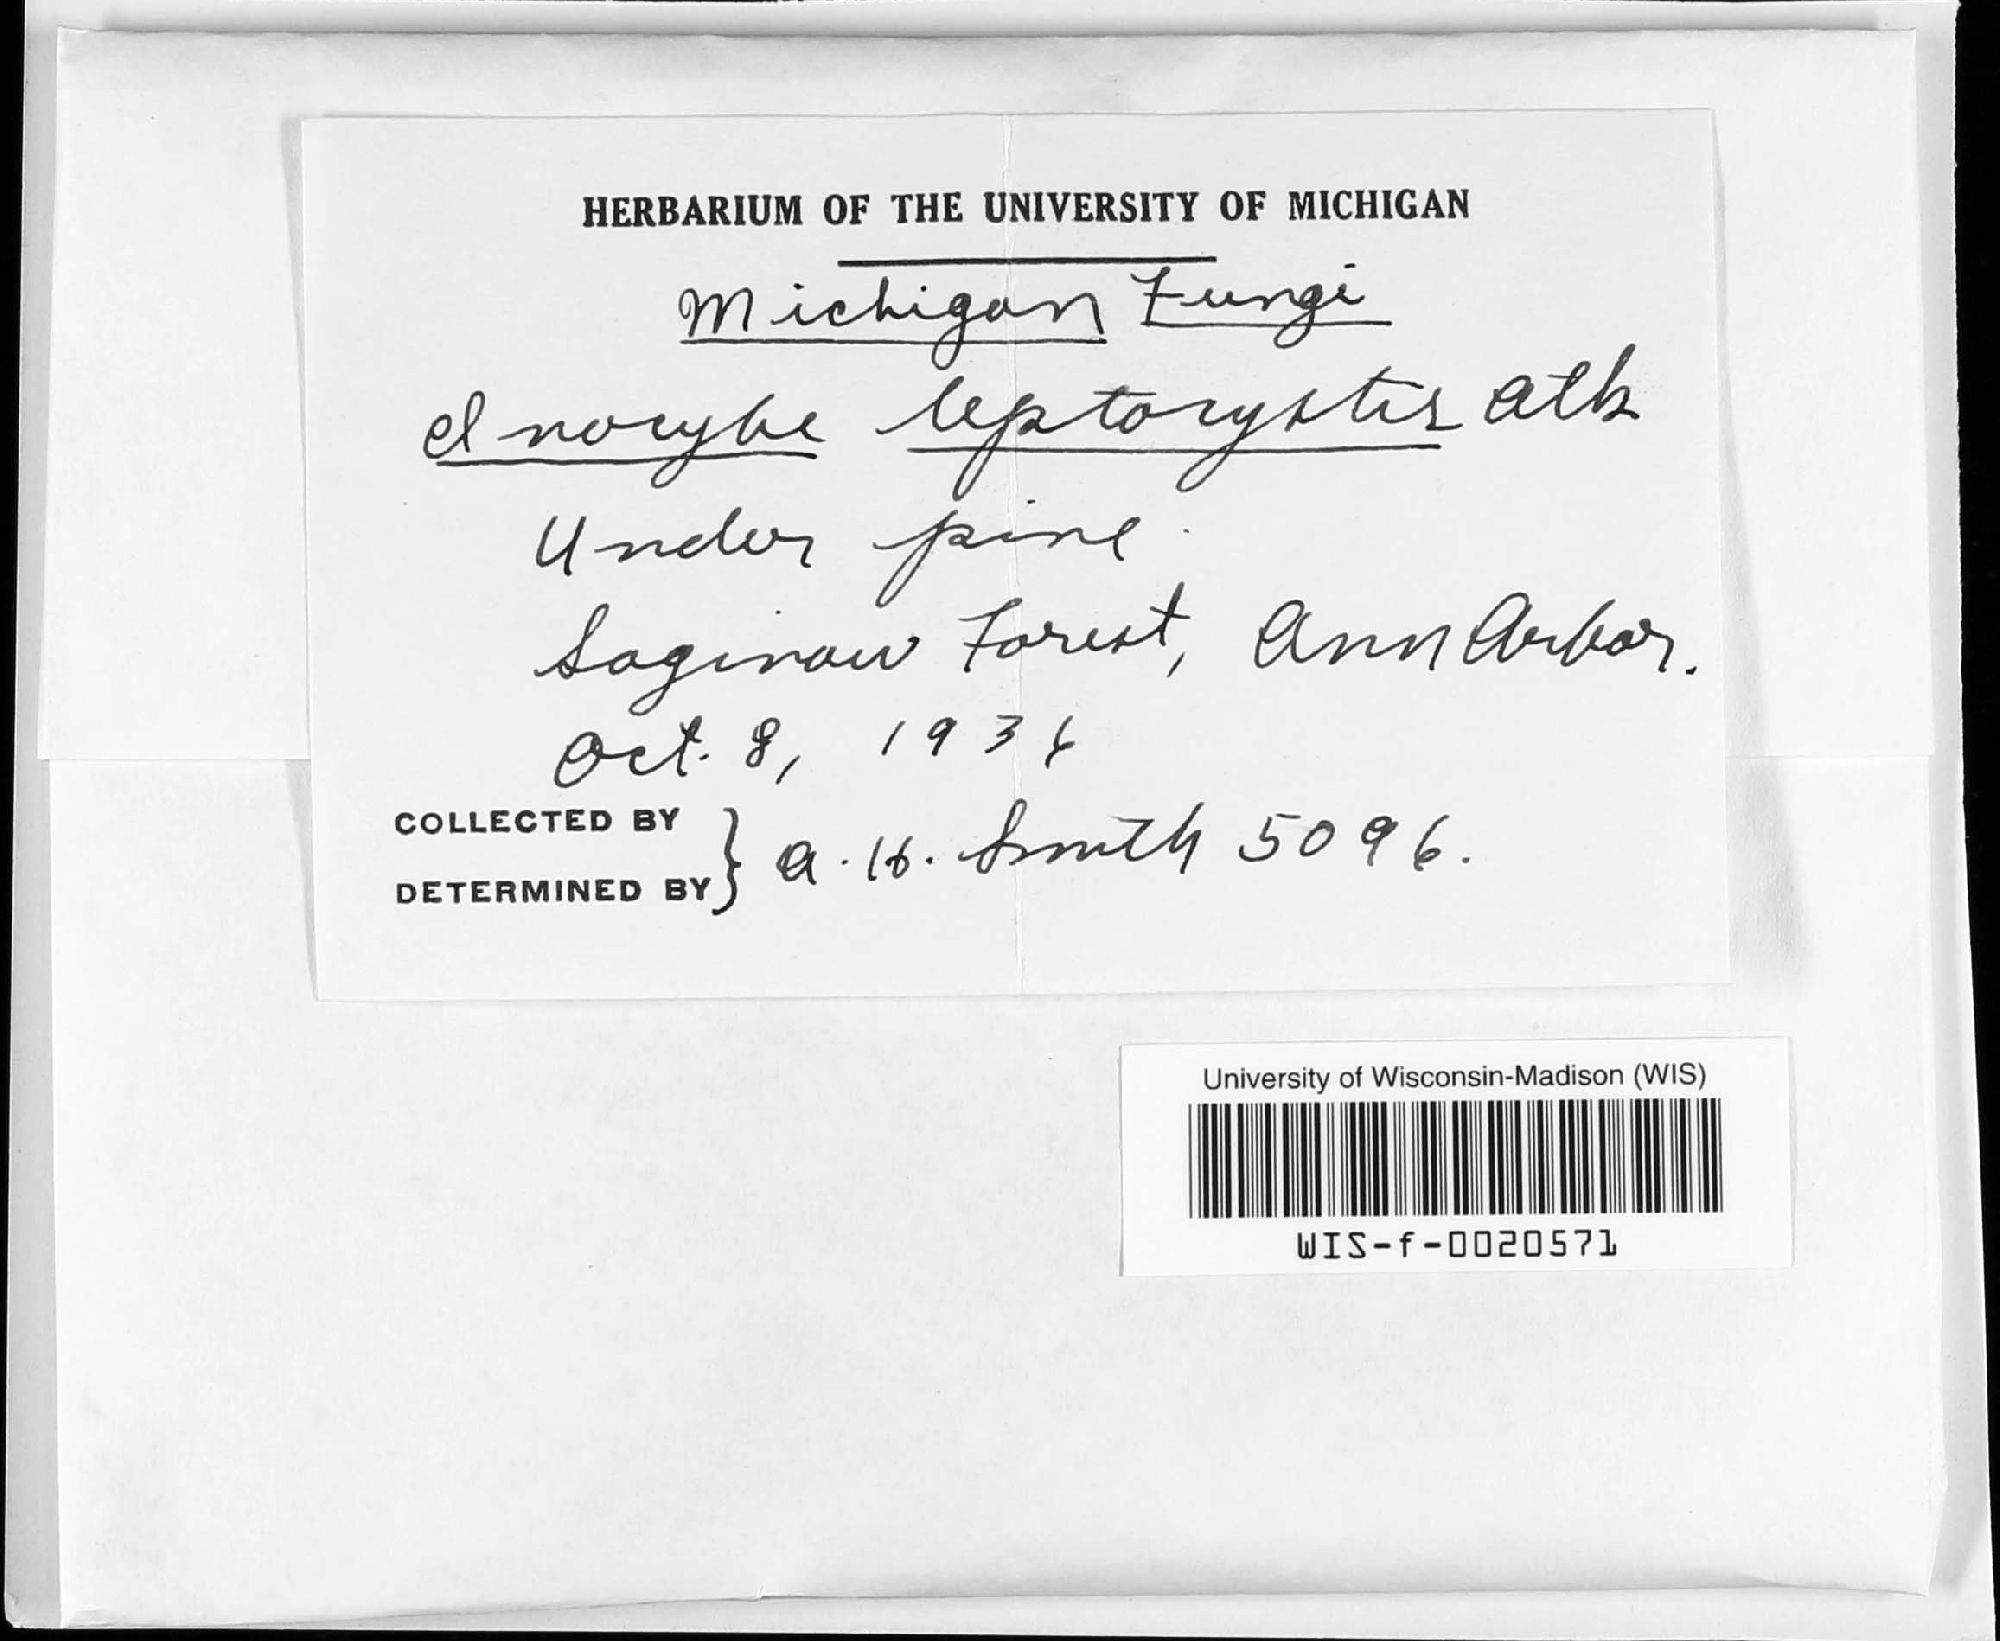 HERBARIUM OF THE UNIVERSITY OF MICHIGAN
Michigan Fungi
Inocybe leptocystis Atk
Under pine.
Saginaw Forest, Ann Arbor.
Oct. 8, 1936
COLLECTED BY
DETERMINED BY } A. H. Smith 5096.
University of Wisconsin-Madison (WIS)
WIS-f-0020571